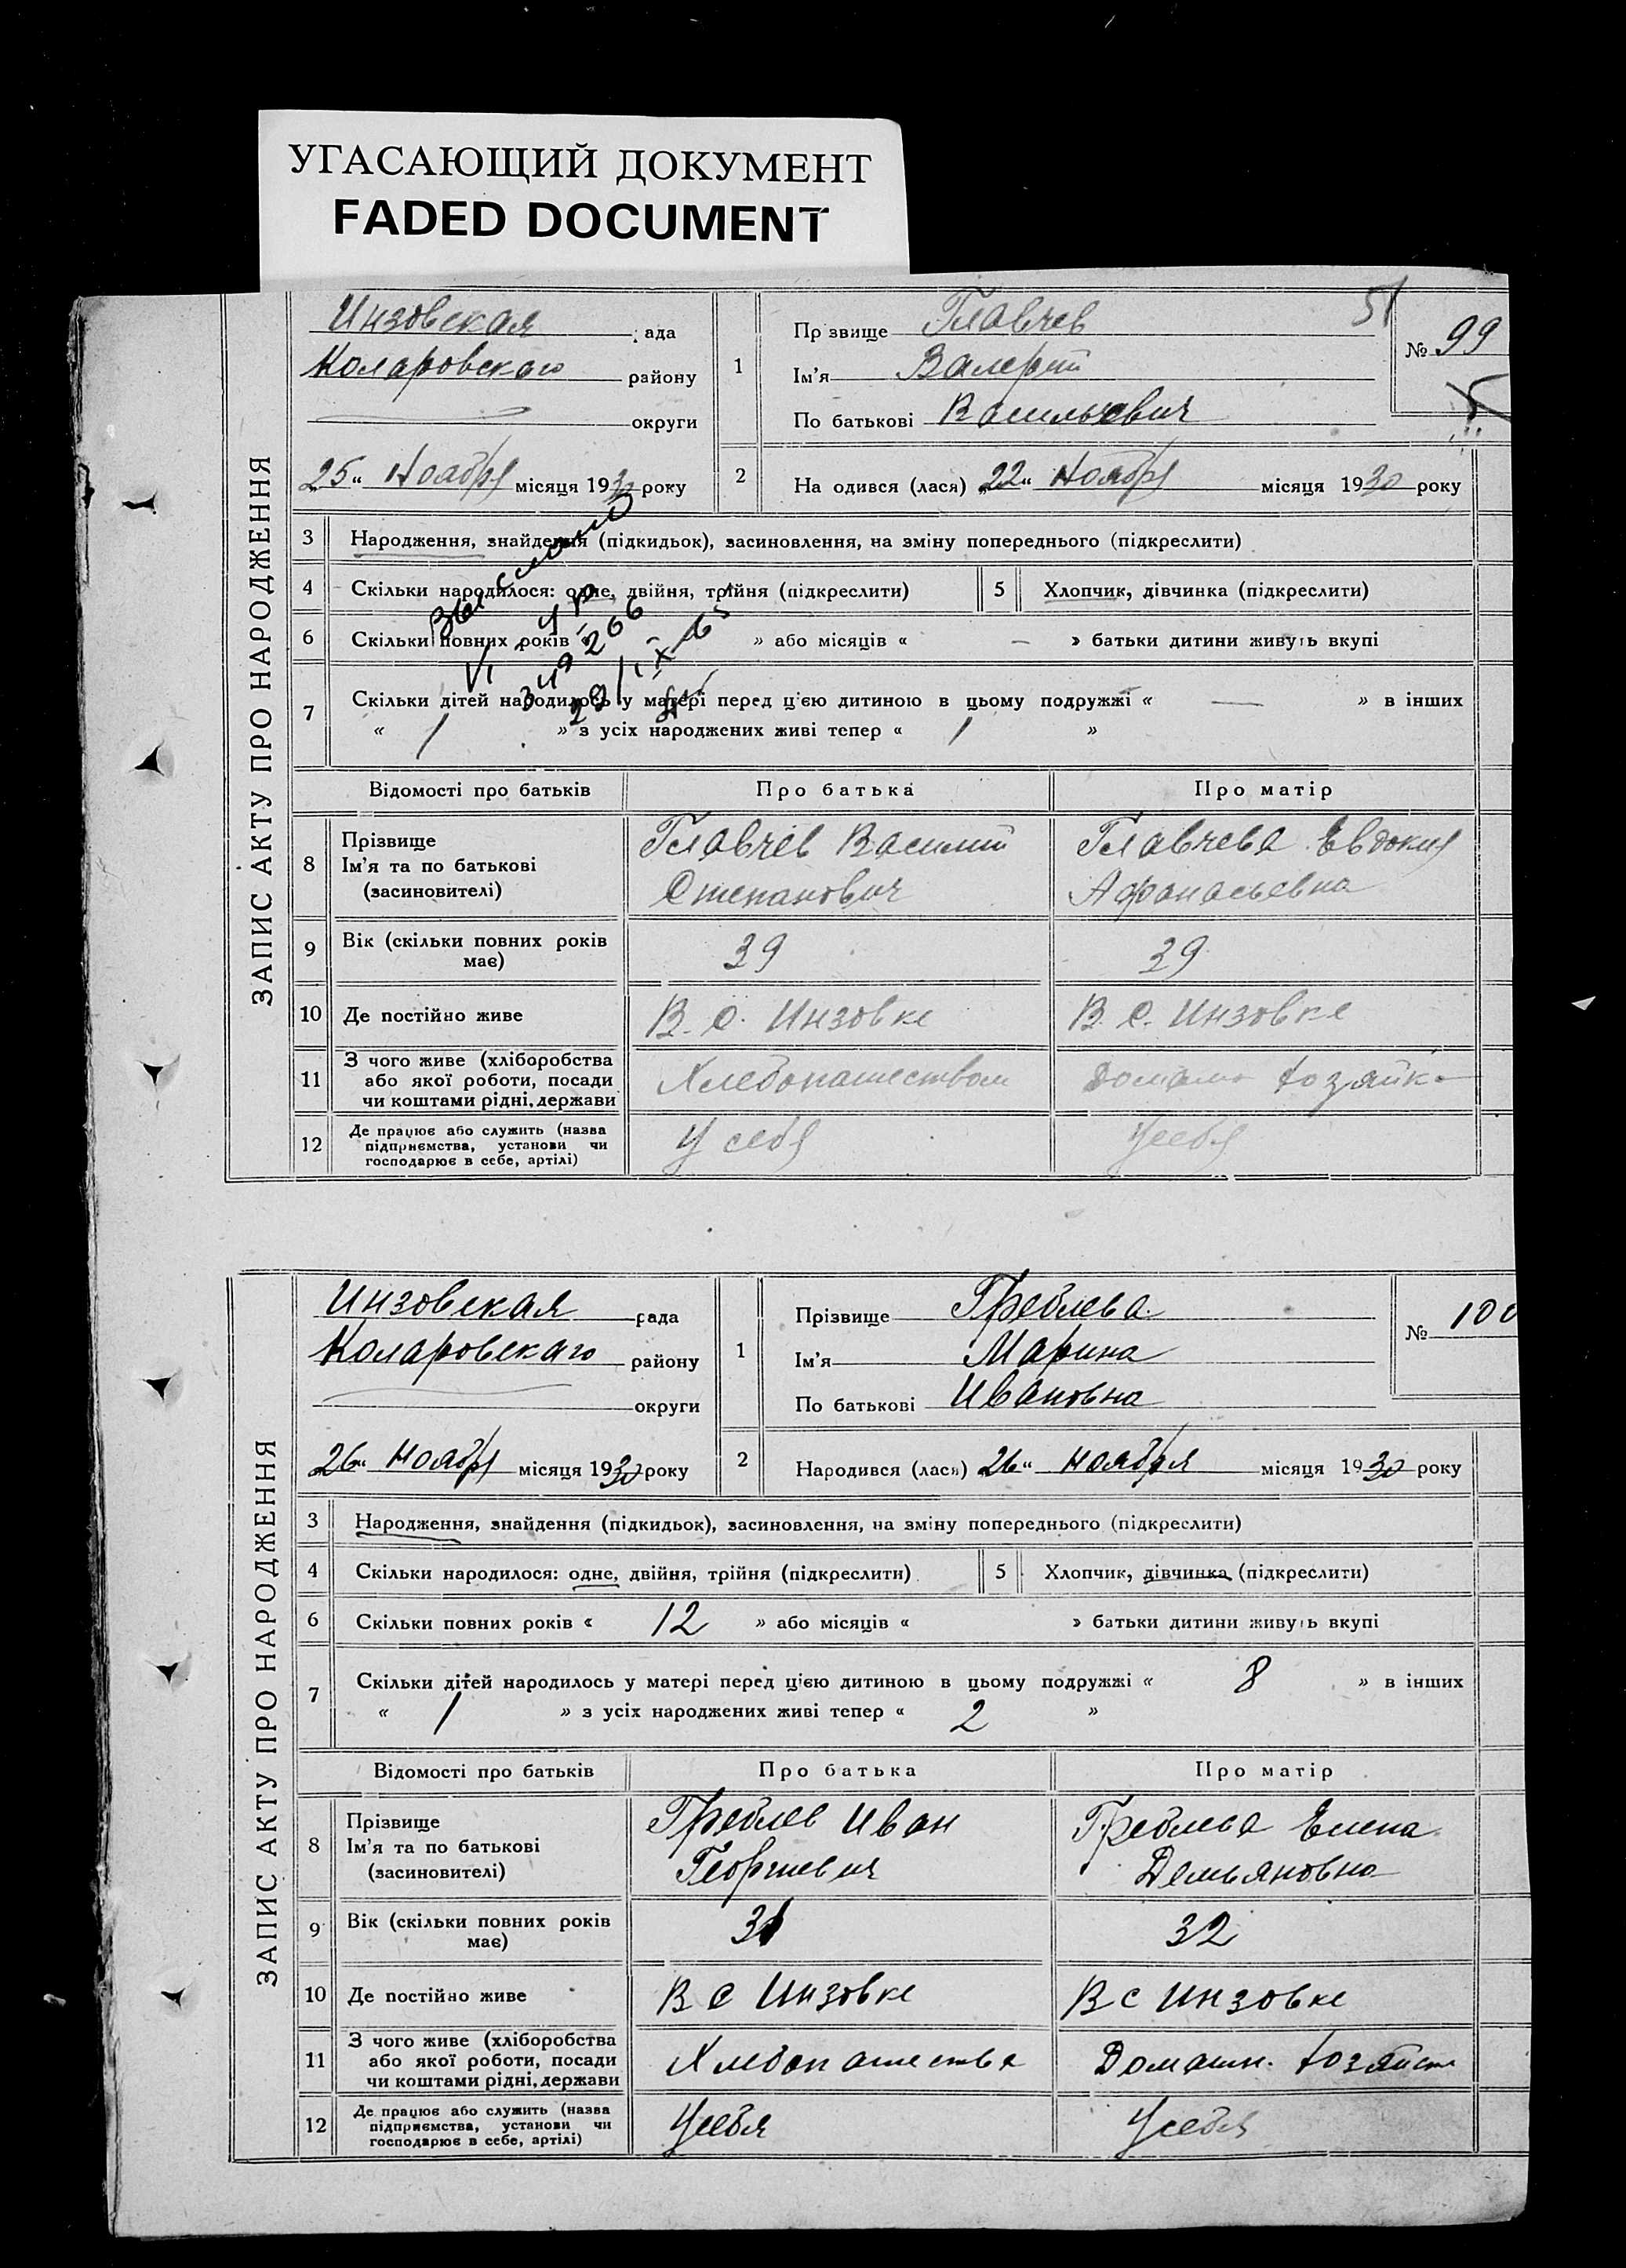 УГАСАЮЩИЙ ДОКУМЕНТ
FADED DOCUMENT
51
ЗАПИС АКТУ ПРО НАРОДЖЕННЯ
Инзовская ада
Коларовскаго району
округи
25 " Ноября місяця 1930 року
1
Пр звище Главчев
Ім'я Валерий
По батькові Васильевич
№ 99
2
На одився (лася) „22" Ноября місяця 1930 року
3 Народження, знайдення (підкидьок), засиновлення, на зміну попереднього (підкреслити)
4 Скільки народилося: одне, двійня, трійня (підкреслити)
5 Хлопчик, дівчинка (підкреслити)
6 Скільки повних років « » або місяців « — » батьки дитини живуть вкупі
7 Скільки дітей народилось у матері перед ц'єю дитиною в цьому подружжі « — » в інших
« 1 » з усіх народжених живі тепер « 1 »
Выслано
349266
Відомості про батьків Про батька Про матір
8 Прізвище
Ім'я та по батькові
(засиновителі)
Главчев Василий
Степанович
Главчева Евдокия
Афанасьевна
9 Вік (скільки повних років
має)
39
39
10 Де постійно живе
В. с. Инзовке
В. с. Инзовке
11 З чого живе (хліборобства
або якої роботи, посади
чи коштами рідні, держави
Хлебопашеством
хозяйка
12 Де працює або служить (назва
підприємства, установи чи
господарює в себе, артілі)
У себя
У себя
ЗАПИС АКТУ ПРО НАРОДЖЕННЯ
Инзовская рада
Коларовскаго району
округи
„26" Ноября місяця 1930 року
1
Прізвище Греблева
Ім'я Марина
По батькові Ивановна
№ 100
2
Народився (лася) „26" ноября місяця 1930 року
3 Народження, знайдення (підкидьок), засиновлення, на зміну попереднього (підкреслити)
4 Скільки народилося: одне, двійня, трійня (підкреслити)
5 Хлопчик, дівчинка (підкреслити)
6 Скільки повних років « 12 » або місяців « » батьки дитини живуть вкупі
7 Скільки дітей народилось у матері перед цією дитиною в цьому подружжі « 8 » в інших
« 1 » з усіх народжених живі тепер « 2 »
Відомості про батьків Про батька Про матір
8 Прізвище
Ім'я та по батькові
(засиновителі)
Греблев Иван
Георгиевич
Греблева Елена
Демьяновна
9 Вік (скільки повних років
має)
31
32
10 Де постійно живе
В с Инзовке
В с Инзовке
11 З чого живе (хліборобства
або якої роботи, посади
чи коштами рідні, держави
Хлебопашества
Домашн. хозяйст
12 Де працює або служить (назва
підприємства, установи чи
господарює в себе, артілі)
У себя
У себя